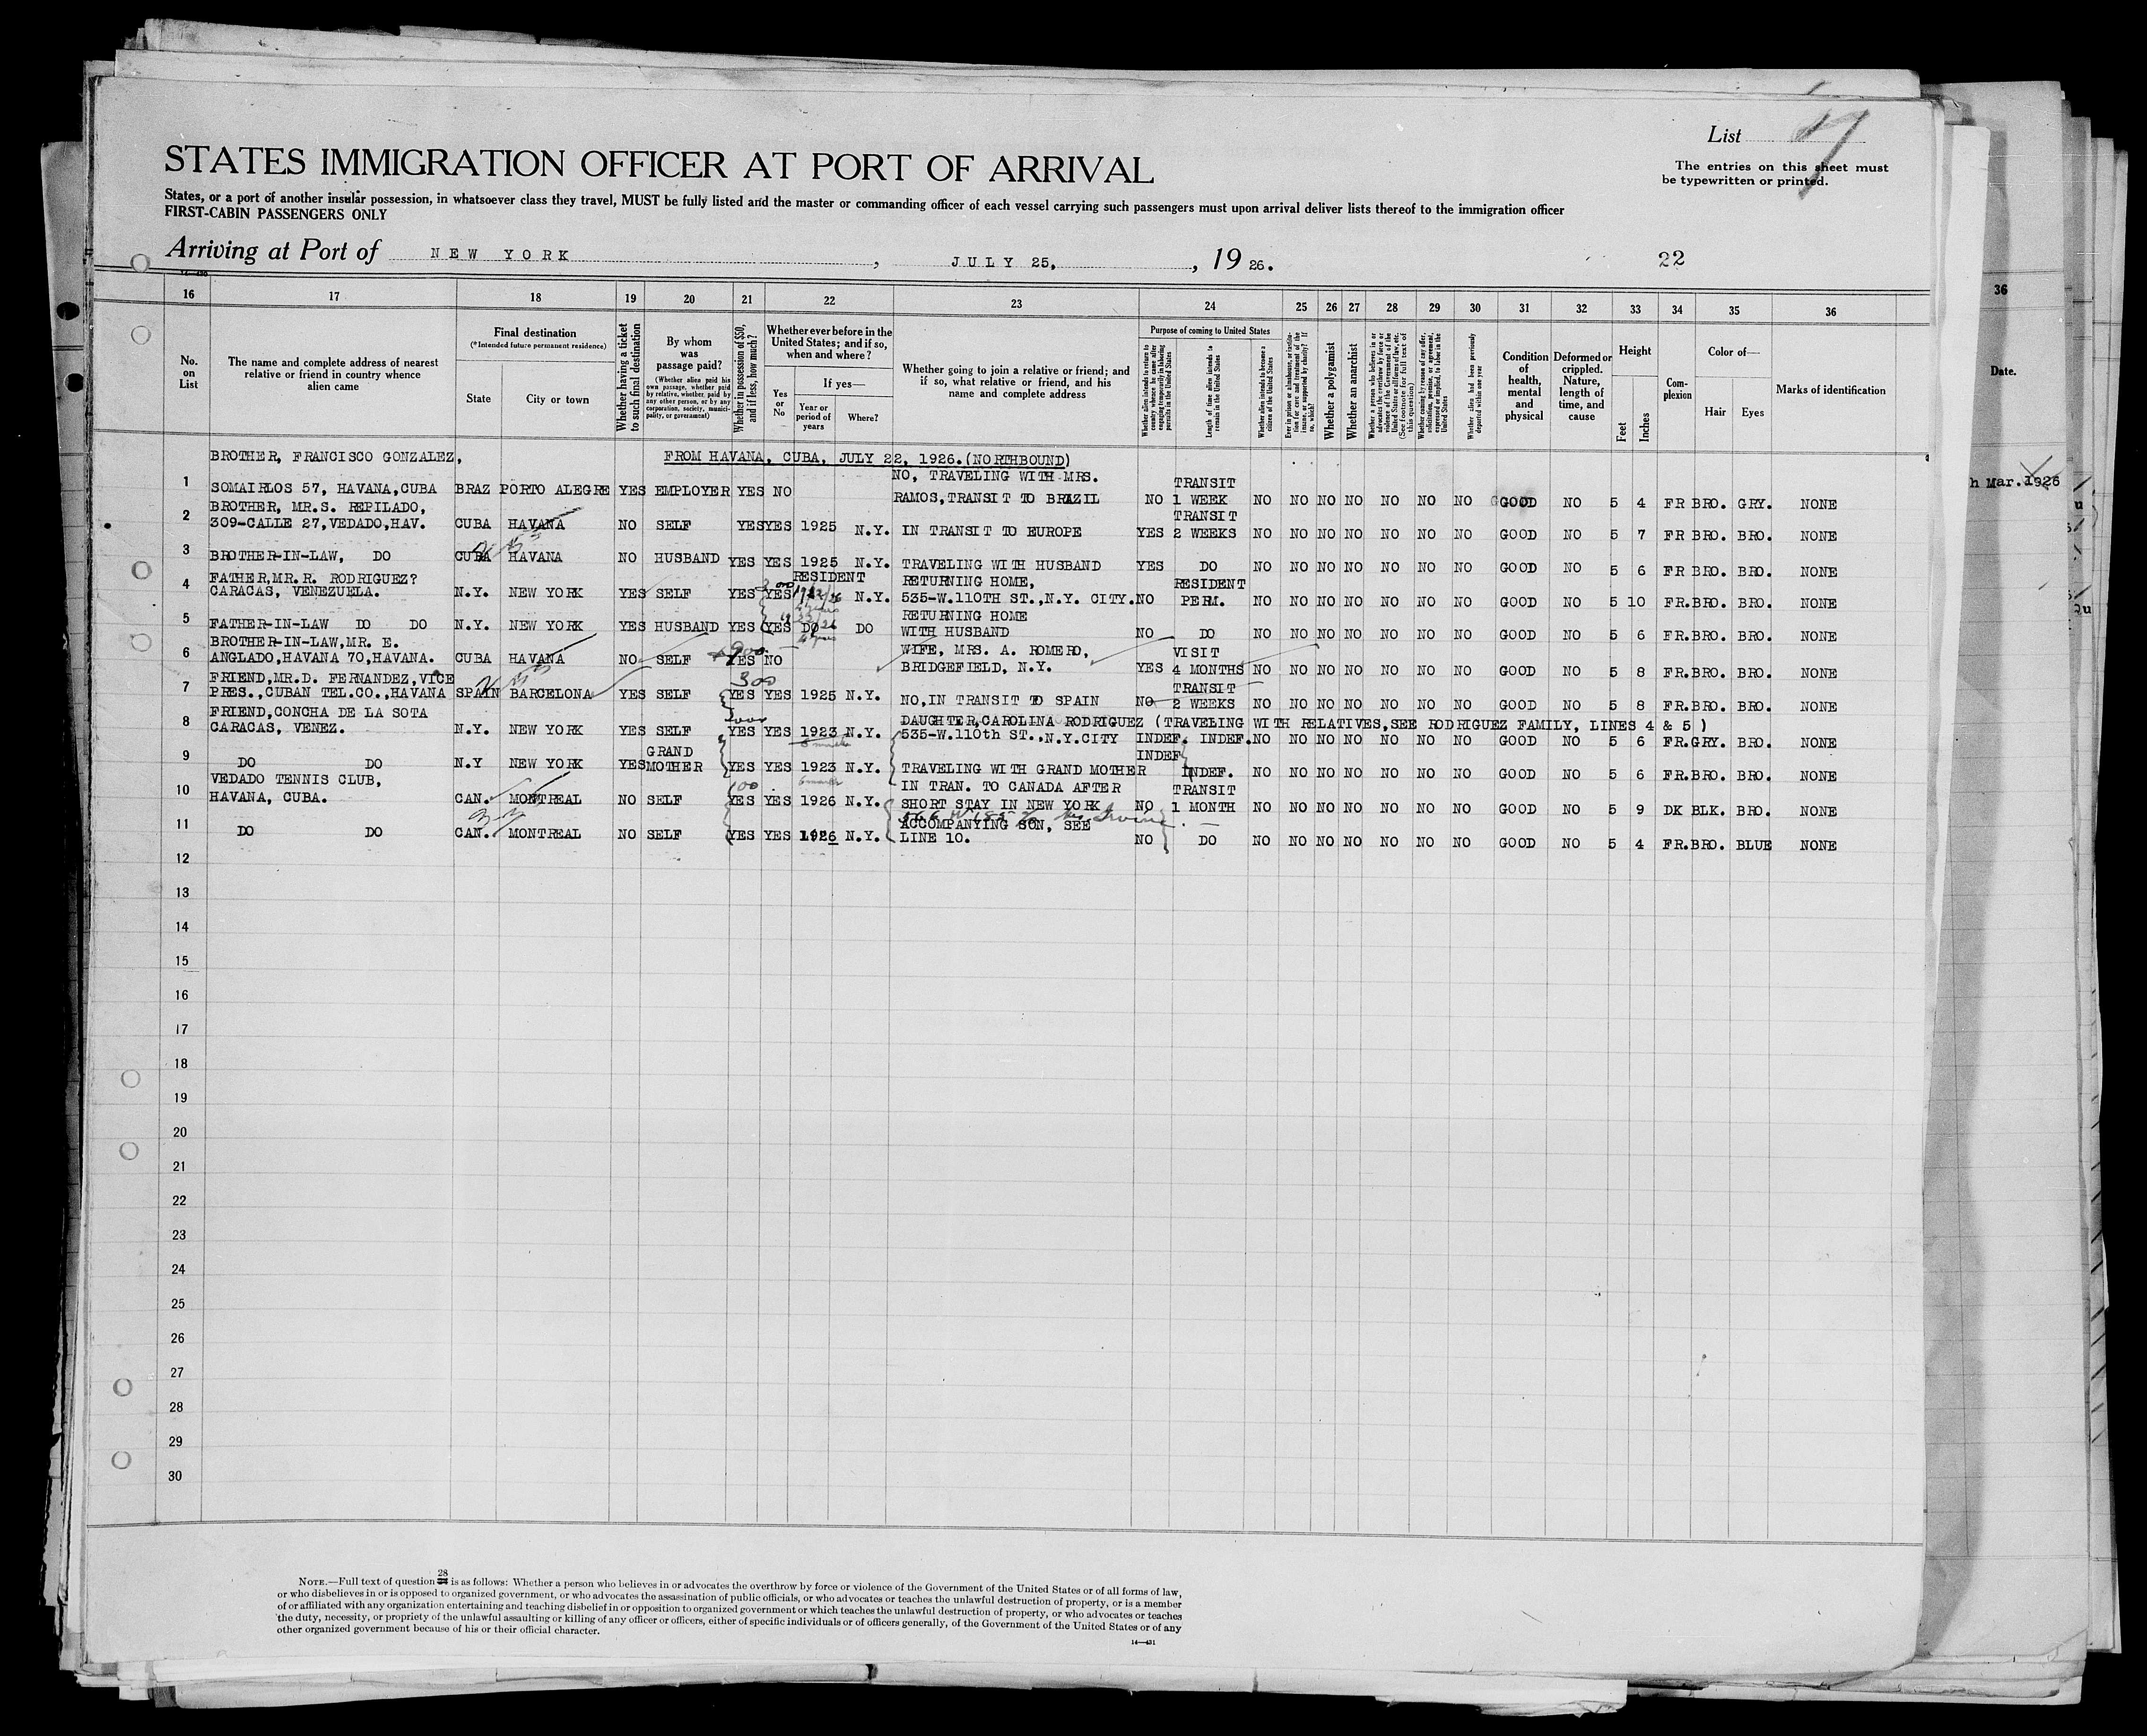 List
STATES IMMIGRATION OFFICER AT PORT OF ARRIVAL
The entries on this sheet must
be typewritten or printed.
States, or a port of another insular possession, in whatsoever class they travel, MUST be fully listed and the master or commanding officer of each vessel carrying such passengers must upon arrival deliver lists thereof to the immigration officer
FIRST-CABIN PASSENGERS ONLY
Arriving at Port of NEW YORK, JULY 25, 1926.
22
16 17 18 19 20 21 22 23 24 25 26 27 28 29 30 31 32 33 34 35 36
No. on List
The name and complete address of nearest relative or friend in country whence alien came
Final destination
(*Intended future permanent residence)
State
City or town
Whether having a ticket to such final destination
By whom was passage paid?
(Whether alien paid his own passage, whether paid by relative, whether paid by any other person, or by any corporation, society, municipality, or government)
Whether in possession of $50, and if less, how much?
Whether ever before in the United States; and if so, when and where?
Yes or No
If yes—
Year or period of years
Where?
Whether going to join a relative or friend; and if so, what relative or friend, and his name and complete address
Purpose of coming to United States
Whether alien intends to return to country whence he came after engaging temporarily in laboring pursuits in the United States
Length of time alien intends to remain in the United States
Whether alien intends to become a citizen of the United States
Ever in prison or almshouse, or institution for care and treatment of the insane, or supported by charity? If so, which?
Whether a polygamist
Whether an anarchist
Whether a person who believes in or advocates the overthrow by force or violence of the Government of the United States or all forms of law, etc. (See footnote for full text of this question)
Whether coming by reason of any offer, solicitation, promise, or agreement, expressed or implied, to labor in the United States
Whether alien had been previously deported within one year
Condition of health, mental and physical
Deformed or crippled. Nature, length of time, and cause
Height
Feet
Inches
Complexion
Color of—
Hair
Eyes
Marks of identification
FROM HAVANA, CUBA, JULY 22, 1926.(NORTHBOUND)
BROTHER, FRANCISCO GONZALEZ,
NO, TRAVELING WITH MRS. TRANSIT
1 SOMAIRLOS 57, HAVANA,CUBA BRAZ PORTO ALEGRE YES EMPLOYER YES NO RAMOS,TRANSIT TO BRAZIL NO 1 WEEK NO NO NO NO NO NO NO GOOD NO 5 4 FR BRO. GRY. NONE
BROTHER, MR.S. REPILADO, TRANSIT
2 309-CALLE 27,VEDADO,HAV. CUBA HAVANA NO SELF YES YES 1925 N.Y. IN TRANSIT TO EUROPE YES 2 WEEKS NO NO NO NO NO NO NO GOOD NO 5 7 FR BRO. BRO. NONE
3 BROTHER-IN-LAW, DO CUBA HAVANA NO HUSBAND YES YES 1925 N.Y. TRAVELING WITH HUSBAND YES DO NO NO NO NO NO NO NO GOOD NO 5 6 FR BRO. BRO. NONE
FATHER,MR.R. RODRIGUEZ? RESIDENT RETURNING HOME, RESIDENT
4 CARACAS, VENEZUELA. N.Y. NEW YORK YES SELF YES YES N.Y. 535-W.110TH ST.,N.Y. CITY. NO PERM. NO NO NO NO NO NO NO GOOD NO 5 10 FR.BRO. BRO. NONE
RETURNING HOME
5 FATHER-IN-LAW DO DO N.Y. NEW YORK YES HUSBAND YES YES DO DO WITH HUSBAND NO DO NO NO NO NO NO NO NO GOOD NO 5 6 FR.BRO. BRO. NONE
BROTHER-IN-LAW,MR. E. 900 WIFE, MRS. A. ROMERO, VISIT
6 ANGLADO,HAVANA 70,HAVANA. CUBA HAVANA NO SELF YES NO BRIDGEFIELD, N.Y. YES 4 MONTHS NO NO NO NO NO NO NO GOOD NO 5 8 FR.BRO. BRO. NONE
FRIEND,MR.D. FERNANDEZ,VICE 300 TRANSIT
7 PRES.,CUBAN TEL.CO.,HAVANA SPAIN BARCELONA YES SELF YES YES 1925 N.Y. NO,IN TRANSIT TO SPAIN NO 2 WEEKS NO NO NO NO NO NO NO GOOD NO 5 8 FR.BRO. BRO. NONE
FRIEND,CONCHA DE LA SOTA DAUGHTER,CAROLINA RODRIGUEZ (TRAVELING WITH RELATIVES,SEE RODRIGUEZ FAMILY, LINES 4 & 5 )
8 CARACAS, VENEZ. N.Y. NEW YORK YES SELF YES YES 1923 N.Y. 535-W.110th ST.,N.Y.CITY INDEF. INDEF. NO NO NO NO NO NO NO GOOD NO 5 6 FR.GRY. BRO. NONE
GRAND INDEF
9 DO DO N.Y NEW YORK YES MOTHER YES YES 1923 N.Y. TRAVELING WITH GRAND MOTHER INDEF. NO NO NO NO NO NO NO GOOD NO 5 6 FR.BRO. BRO. NONE
VEDADO TENNIS CLUB, 100 IN TRAN. TO CANADA AFTER TRANSIT
10 HAVANA, CUBA. CAN. MONTREAL NO SELF YES YES 1926 N.Y. SHORT STAY IN NEW YORK NO 1 MONTH NO NO NO NO NO NO NO GOOD NO 5 9 DK BLK. BRO. NONE
ACCOMPANYING SON, SEE
11 DO DO CAN. MONTREAL NO SELF YES YES 1926 N.Y. LINE 10. NO DO NO NO NO NO NO NO NO GOOD NO 5 4 FR.BRO. BLUE NONE
12
13
14
15
16
17
18
19
20
21
22
23
24
25
26
27
28
29
30
NOTE.—Full text of question 28 is as follows: Whether a person who believes in or advocates the overthrow by force or violence of the Government of the United States or of all forms of law,
or who disbelieves in or is opposed to organized government, or who advocates the assassination of public officials, or who advocates or teaches the unlawful destruction of property, or is a member
of or affiliated with any organization entertaining and teaching disbelief in or opposition to organized government or which teaches the unlawful destruction of property, or who advocates or teaches
the duty, necessity, or propriety of the unlawful assaulting or killing of any officer or officers, either of specific individuals or of officers generally, of the Government of the United States or of any
other organized government because of his or their official character.
14—431
36
Date.
h Mar. 1926